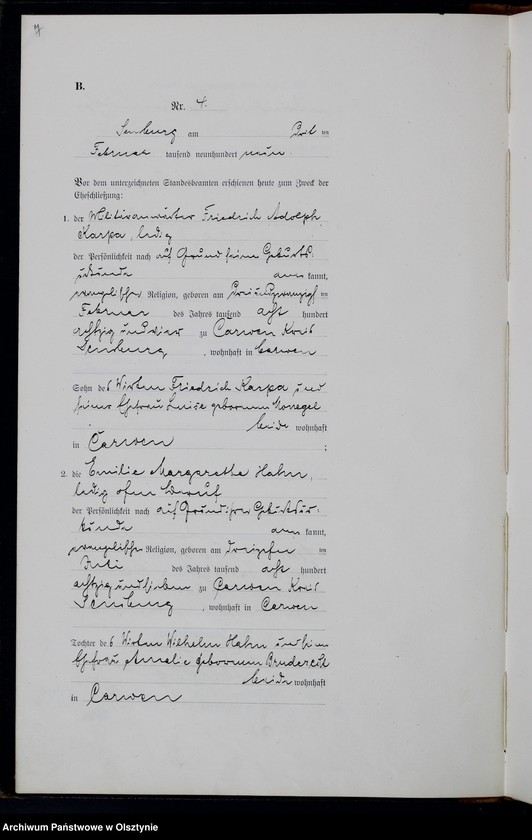 B.
Nr. 4.
Sensburg am
Februar tausend neunhundert neun
Vor dem unterzeichneten Standesbeamten erschienen heute zum Zweck der
Eheschließung:
1. der Militäranwärter Friedrich Adolph
Karpa, ledig
der Persönlichkeit nach auf Grund seiner Geburts-
urkunde anerkannt,
evangelischer Religion, geboren am Dreiundzwanzigsten
Februar des Jahres tausend acht hundert
achtzig und vier zu Carwen Kreis
Sensburg, wohnhaft in Carwen
Sohn des Wirten Friedrich Karpa und
seiner Ehefrau Luise geborenen
beide wohnhaft
in Carwen ;
2. die Emilie Margarethe Hahn,
ledig ohne Beruf
der Persönlichkeit nach auf Grund ihrer Geburtsur-
kunde anerkannt,
evangelischer Religion, geboren am Dreizehnten
Juli des Jahres tausend acht hundert
achtzig und sieben zu Carwen Kreis
Sensburg, wohnhaft in Carwen
Tochter des Wirten Wilhelm Hahn und seiner
Ehefrau Amalie geborenen
beide wohnhaft
in Carwen
Archiwum Państwowe w Olsztynie